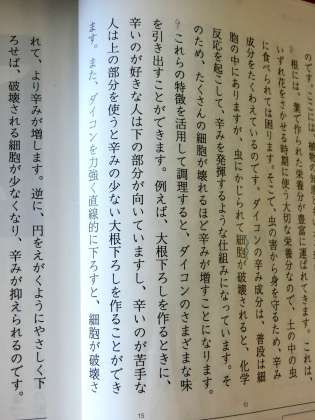 のです。ここには、植物の
根には、葉で作られた栄養分が豊富に運ばれてきます。これは、
いずれ花をさかせる時期に使う大切な栄養分なので、土の中の虫
に食べられては困ります。そこで、虫の害から身を守るため、辛み
成分をたくわえているのです。ダイコンの辛み成分は、普段は細
胞の中にありますが、虫にかじられて細胞が破壊されると、化学
反応を起こして、辛みを発揮するような仕組みになっています。そ
のため、たくさんの細胞が壊れるほど辛みが増すことになります。
9 これらの特徴を活用して調理すると、ダイコンのさまざまな味
を引き出すことができます。例えば、大根下ろしを作るときに、
辛いのが好きな人は下の部分が向いていますし、辛いのが苦手な
人は上の部分を使うと辛みの少ない大根下ろしを作ることができ
ます。また、ダイコンを力強く直線的に下ろすと、細胞が破壊さ
れて、より辛みが増します。逆に、円をえがくようにやさしく下
ろせば、破壊される細胞が少なくなり、辛みが抑えられるのです。
10
15